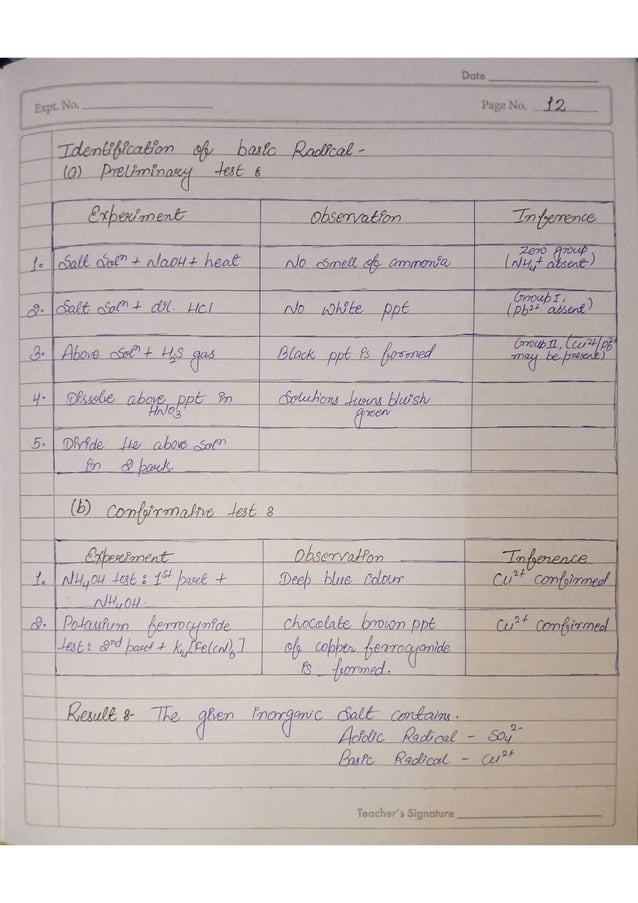 Date
Expt. No.
Page No. 12
Identification of basic Radical -
(a) Preliminary test :
Experiment Observation Inference
1. Salt Solⁿ + NaOH + heat No smell of ammonia Zero group
(NH₄⁺ absent)
2. Salt Solⁿ + dil. HCl No white ppt Group I,
(Pb²⁺ absent)
3. Above Solⁿ + H₂S gas Black ppt is formed Group II, (Cu²⁺/Pb²⁺
may be present)
4. Dissolve above ppt in Solutions turns bluish
HNO₃ green
5. Divide the above Solⁿ
in 2 parts.
(b) Confirmative test :
Experiment Observation Inference
1. NH₄OH test : 1st part + Deep blue colour Cu²⁺ confirmed
NH₄OH.
2. Potassium ferrocynide chocalate brown ppt Cu²⁺ confirmed
test : 2nd part + K₄[Fe(CN)₆] of copper ferrocyanide
is formed.
Result :- The given inorganic Salt contains.
Acidic Radical - SO₄²⁻
Basic Radical - Cu²⁺
Teacher's Signature